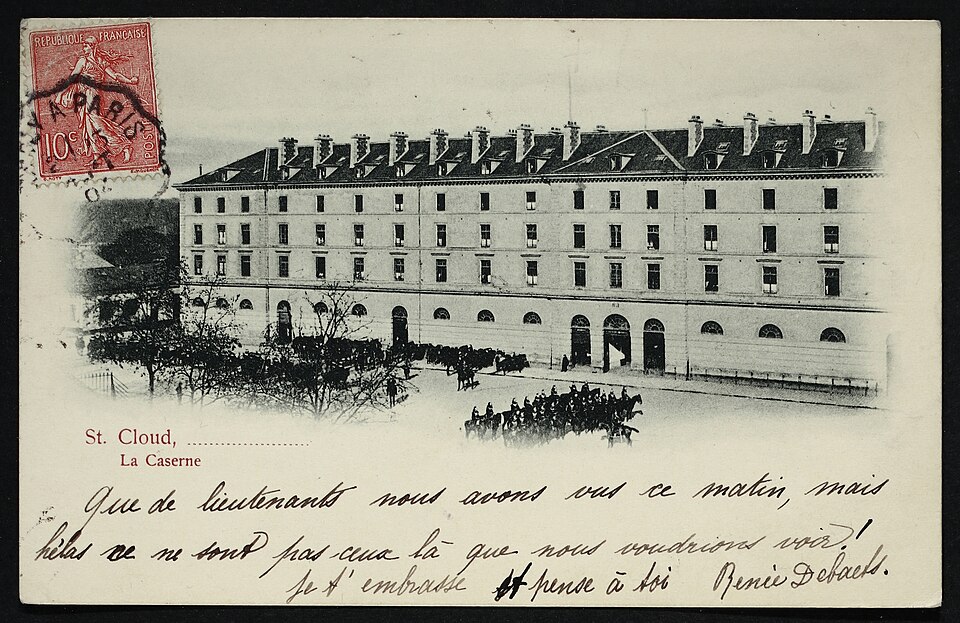 RÉPUBLIQUE FRANÇAISE
10c
POSTES
A PARIS
St. Cloud, ......................
La Caserne
Que de lieutenants nous avons vus ce matin, mais
hélas ce ne sont pas ceux là que nous voudrions voir!
Je t'embrasse et pense à toi Renée Debaets.